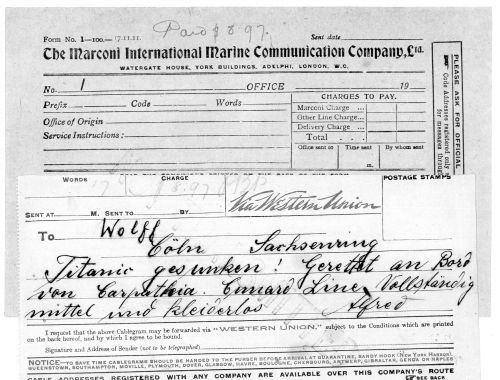 Paid $8.97.
Form No. 1—100— 17.11.11.
Sent date
The Marconi International Marine Communication Company, Ltd.
WATERGATE HOUSE, YORK BUILDINGS, ADELPHI, LONDON, W.C.
No. 1 OFFICE 19
Prefix Code Words
Office of Origin
Service Instructions:
CHARGES TO PAY.
Marconi Charge ...
Other Line Charge ...
Delivery Charge ...
Total . . .
Office sent to Time sent By whom sent
m.
PLEASE ASK FOR OFFICIAL
Code Addresses registered only
for messages through
WORDS CHARGE POSTAGE STAMPS
SENT AT M. SENT TO BY Via Western Union
To Wolff
Cöln Sachsenring
Titanic gesunken! Gerettet an Bord
von Carpathia. Cunard Line, Vollständig
mittel und kleiderlos Alfred
I request that the above Cablegram may be forwarded via "WESTERN UNION," subject to the Conditions which are printed
on the back hereof, and by which I agree to be bound.
Signature and Address of Sender (not to be telegraphed)
NOTICE—TO SAVE TIME CABLEGRAMS SHOULD BE HANDED TO THE PURSER BEFORE ARRIVAL AT QUARANTINE, SANDY HOOK (NEW YORK HARBOR),
QUEENSTOWN, SOUTHAMPTON, MOVILLE, PLYMOUTH, DOVER, GLASGOW, HAVRE, BOULOGNE, CHERBOURG, ANTWERP, GIBRALTAR, GENOA OR NAPLES
CABLE ADDRESSES REGISTERED WITH ANY COMPANY ARE AVAILABLE OVER THIS COMPANY'S ROUTE
SEE BACK.